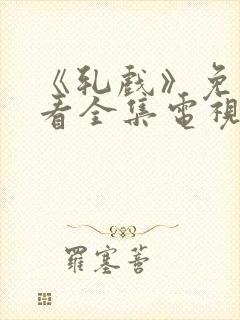 《乳戲》免
看全集電視
羅塞菩